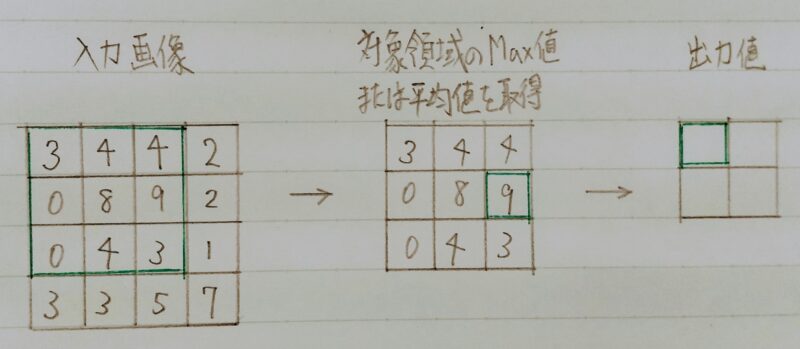 入力画像
対象領域のMax値
または平均値を取得
出力値
3 4 4 2
0 8 9 2
0 4 3 1
3 3 5 7
→
3 4 4
0 8 9
0 4 3
→